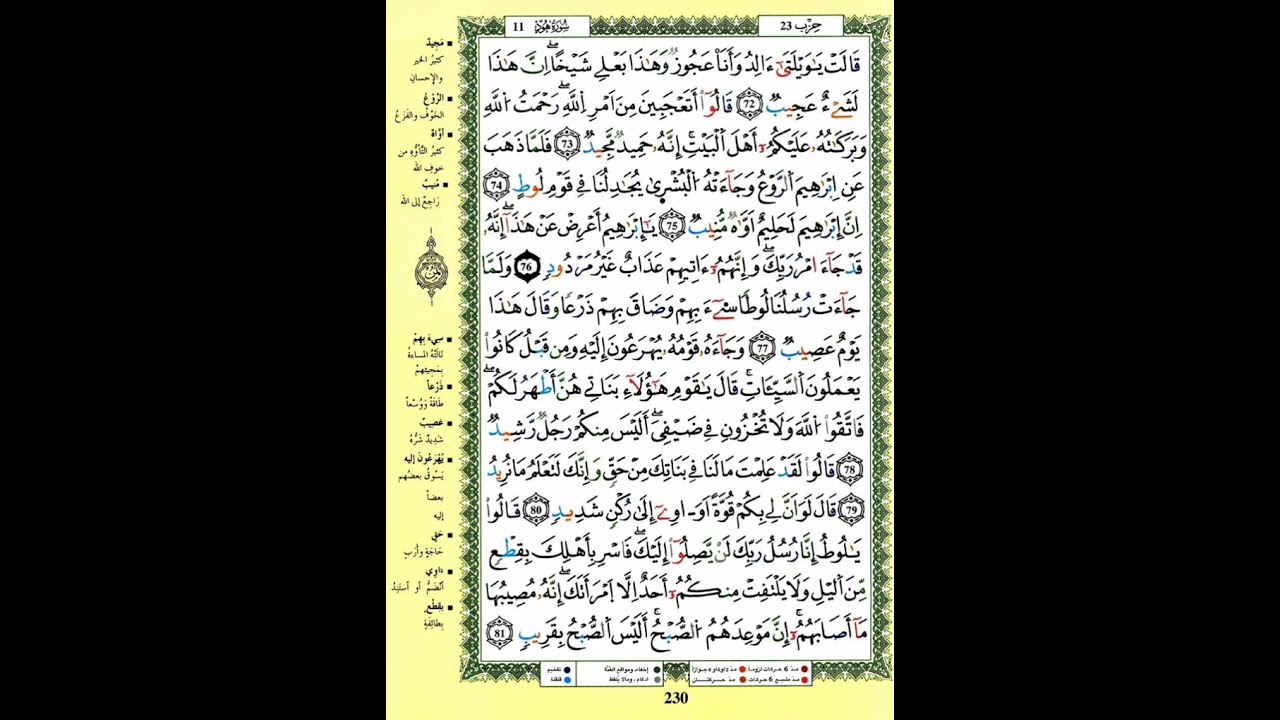 حِزْب 23
سُورَةُ هُود 11
قَالَتْ يَٰوَيْلَتَىٰٓ ءَٰالِدُ وَأَنَا عَجُوزٌ وَهَٰذَا بَعْلِي شَيْخًا إِنَّ هَٰذَا
لَشَيْءٌ عَجِيبٌ 72 قَالُوٓا۟ أَتَعْجَبِينَ مِنَ اَمْرِ اِ۬للَّهِۖ رَحْمَتُ اُ۬للَّهِ
وَبَرَكَٰتُهُۥ عَلَيْكُمُۥٓ أَهْلَ اَ۬لْبَيْتِۚ إِنَّهُۥ حَمِيدٌ مَّجِيدٌ 73 فَلَمَّا ذَهَبَ
عَنِ اِبْرَٰهِيمَ اَ۬لرَّوْعُ وَجَآءَتْهُ اُ۬لْبُشْر۪ىٰ يُجَٰدِلُنَا فِي قَوْمِ لُوطٍ 74
اِنَّ إِبْرَٰهِيمَ لَحَلِيمٌ اَوَّٰهٌ مُّنِيبٌ 75 يَٰٓإِبْرَٰهِيمُ أَعْرِضْ عَنْ هَٰذَآ إِنَّهُۥ
قَدْ جَآءَ امْرُ رَبِّكَۖ وَإِنَّهُمُۥٓ ءَاتِيهِمْ عَذَابٌ غَيْرُ مَرْدُودٍ 76 وَلَمَّا
جَآءَتْ رُسُلُنَا لُوطًا سِيٓءَ بِهِمْ وَضَاقَ بِهِمْ ذَرْعًا وَقَالَ هَٰذَا
يَوْمٌ عَصِيبٌ 77 وَجَآءَهُۥ قَوْمُهُۥ يُهْرَعُونَ إِلَيْهِ وَمِن قَبْلُ كَانُوا۟
يَعْمَلُونَ اَ۬لسَّيِّـَٔاتِۚ قَالَ يَٰقَوْمِ هَٰٓؤُلَآءِ بَنَاتِي هُنَّ أَطْهَرُ لَكُمْۖ
فَاتَّقُوا۟ اُ۬للَّهَ وَلَا تُخْزُونِ فِي ضَيْفِيَۖ أَلَيْسَ مِنكُمْ رَجُلٌ رَّشِيدٌ
78 قَالُوا۟ لَقَدْ عَلِمْتَ مَا لَنَا فِي بَنَاتِكَ مِنْ حَقٍّ وَإِنَّكَ لَتَعْلَمُ مَا نُرِيدُ
79 قَالَ لَوَ اَنَّ لِي بِكُمْ قُوَّةً اَوَ اٰوِيٓ إِلَىٰ رُكْنٍ شَدِيدٍ 80 قَالُوا۟
يَٰلُوطُ إِنَّا رُسُلُ رَبِّكَ لَنْ يَّصِلُوٓا۟ إِلَيْكَۖ فَاسْرِ بِأَهْلِكَ بِقِطْعٍ
مِّنَ اَ۬ليْلِ وَلَا يَلْتَفِتْ مِنكُمُۥٓ أَحَدٌ اِلَّا اَ۪مْرَأَتَكَۖ إِنَّهُۥ مُصِيبُهَا
مَآ أَصَابَهُمُۥٓۚ إِنَّ مَوْعِدَهُمُ اُ۬لصُّبْحُۚ أَلَيْسَ اَ۬لصُّبْحُ بِقَرِيبٍ 81
■ مَجِيدٌ
كثيرُ الخير
والإحسانِ
■ الرَّوْعُ
الخوفُ والفَزَعُ
■ أوَّاهٌ
كثيرُ التَّأَوُّهِ من
خوفِ الله
■ مُنيبٌ
رَاجِعٌ إلى الله
■ سيءَ بهمْ
نالَتْهُ المساءةُ
بِمَجيئهمْ
■ ذَرْعاً
طَاقَةً وَوُسْعاً
■ عَصِيبٌ
شَديدٌ شَرُّهُ
■ يُهْرَعُونَ إليه
يَسُوقُ بعضُهم
بعضاً
إليه
■ حَقٍ
حَاجَةٍ وأرَبٍ
■ ءَاوِي
أنْضَمُّ أو أستَنِدُ
■ بقِطْعٍ
بِطائفَةٍ
مدّ 6 حركات لزوماً مدّ 2 أو 4 أو 6 جوازاً
مدّ مشبع 6 حركات مدّ حركتان
إخفاء، ومواقع الغُنَّة تفخيم
ادغام، ومالا يُلفظ قلقلة
230